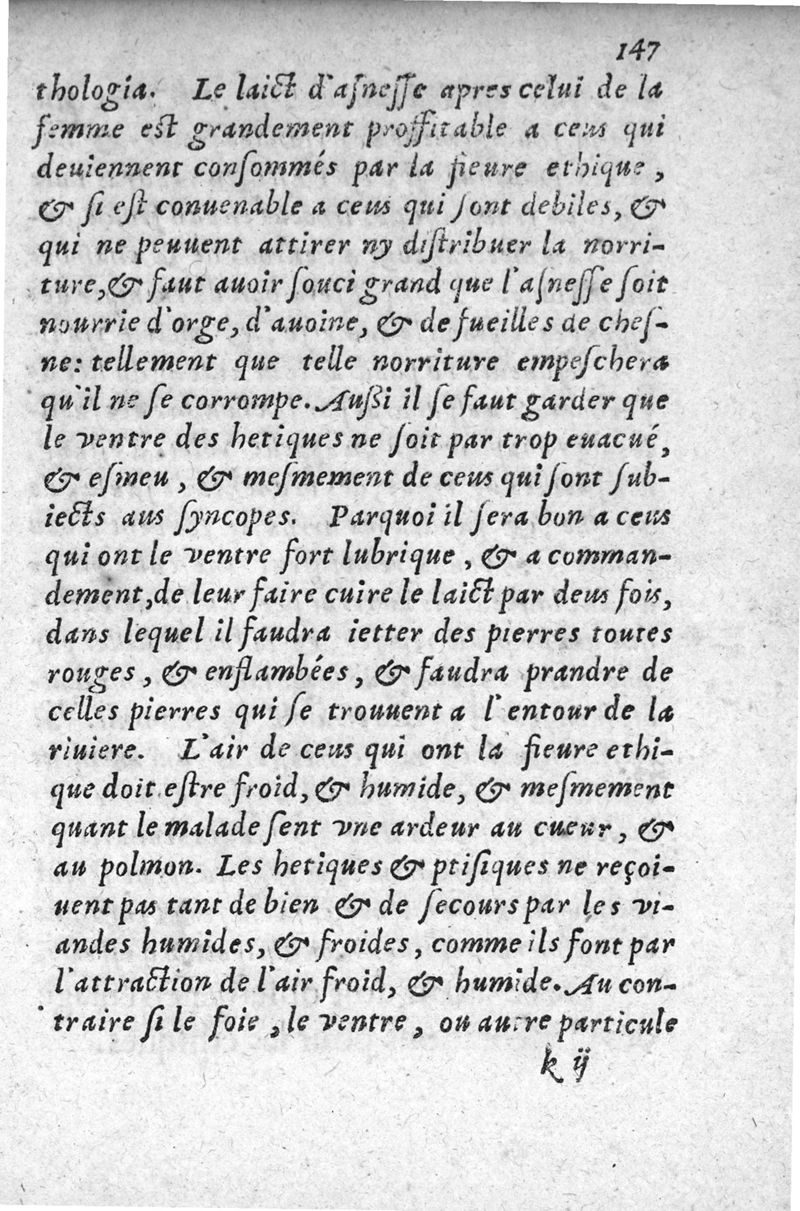 147
thologia. Le laict d'aſneſſe apres celui de la
femme est grandement proffitable a ceus qui
deuiennent conſommés par la fieure ethique,
& ſi eſt conuenable a ceus qui ſont debiles, &
qui ne peuuent attirer ny diſtribuer la norri-
ture, & faut auoir ſouci grand que l'aſneſſe ſoit
nourrie d'orge, d'auoine, & de fueilles de cheſ-
ne: tellement que telle norriture empeſchera
qu'il ne ſe corrompe. Auſſi il ſe faut garder que
le ventre des hetiques ne ſoit par trop euacué,
& eſmeu, & meſmement de ceus qui ſont ſub-
iects aus ſyncopes. Parquoi il ſera bon a ceus
qui ont le ventre fort lubrique, & a comman-
dement, de leur faire cuire le laict par deus fois,
dans lequel il faudra ietter des pierres toutes
rouges, & enflambées, & faudra prandre de
celles pierres qui ſe trouuent a l'entour de la
riuiere. L'air de ceus qui ont la fieure ethi-
que doit eſtre froid, & humide, & meſmement
quant le malade ſent vne ardeur au cueur, &
au polmon. Les hetiques & ptiſiques ne reçoi-
uent pas tant de bien & de ſecours par les vi-
andes humides, & froides, comme ils font par
l'attraction de l'air froid, & humide. Au con-
traire ſi le foie, le ventre, ou autre particule
k ij